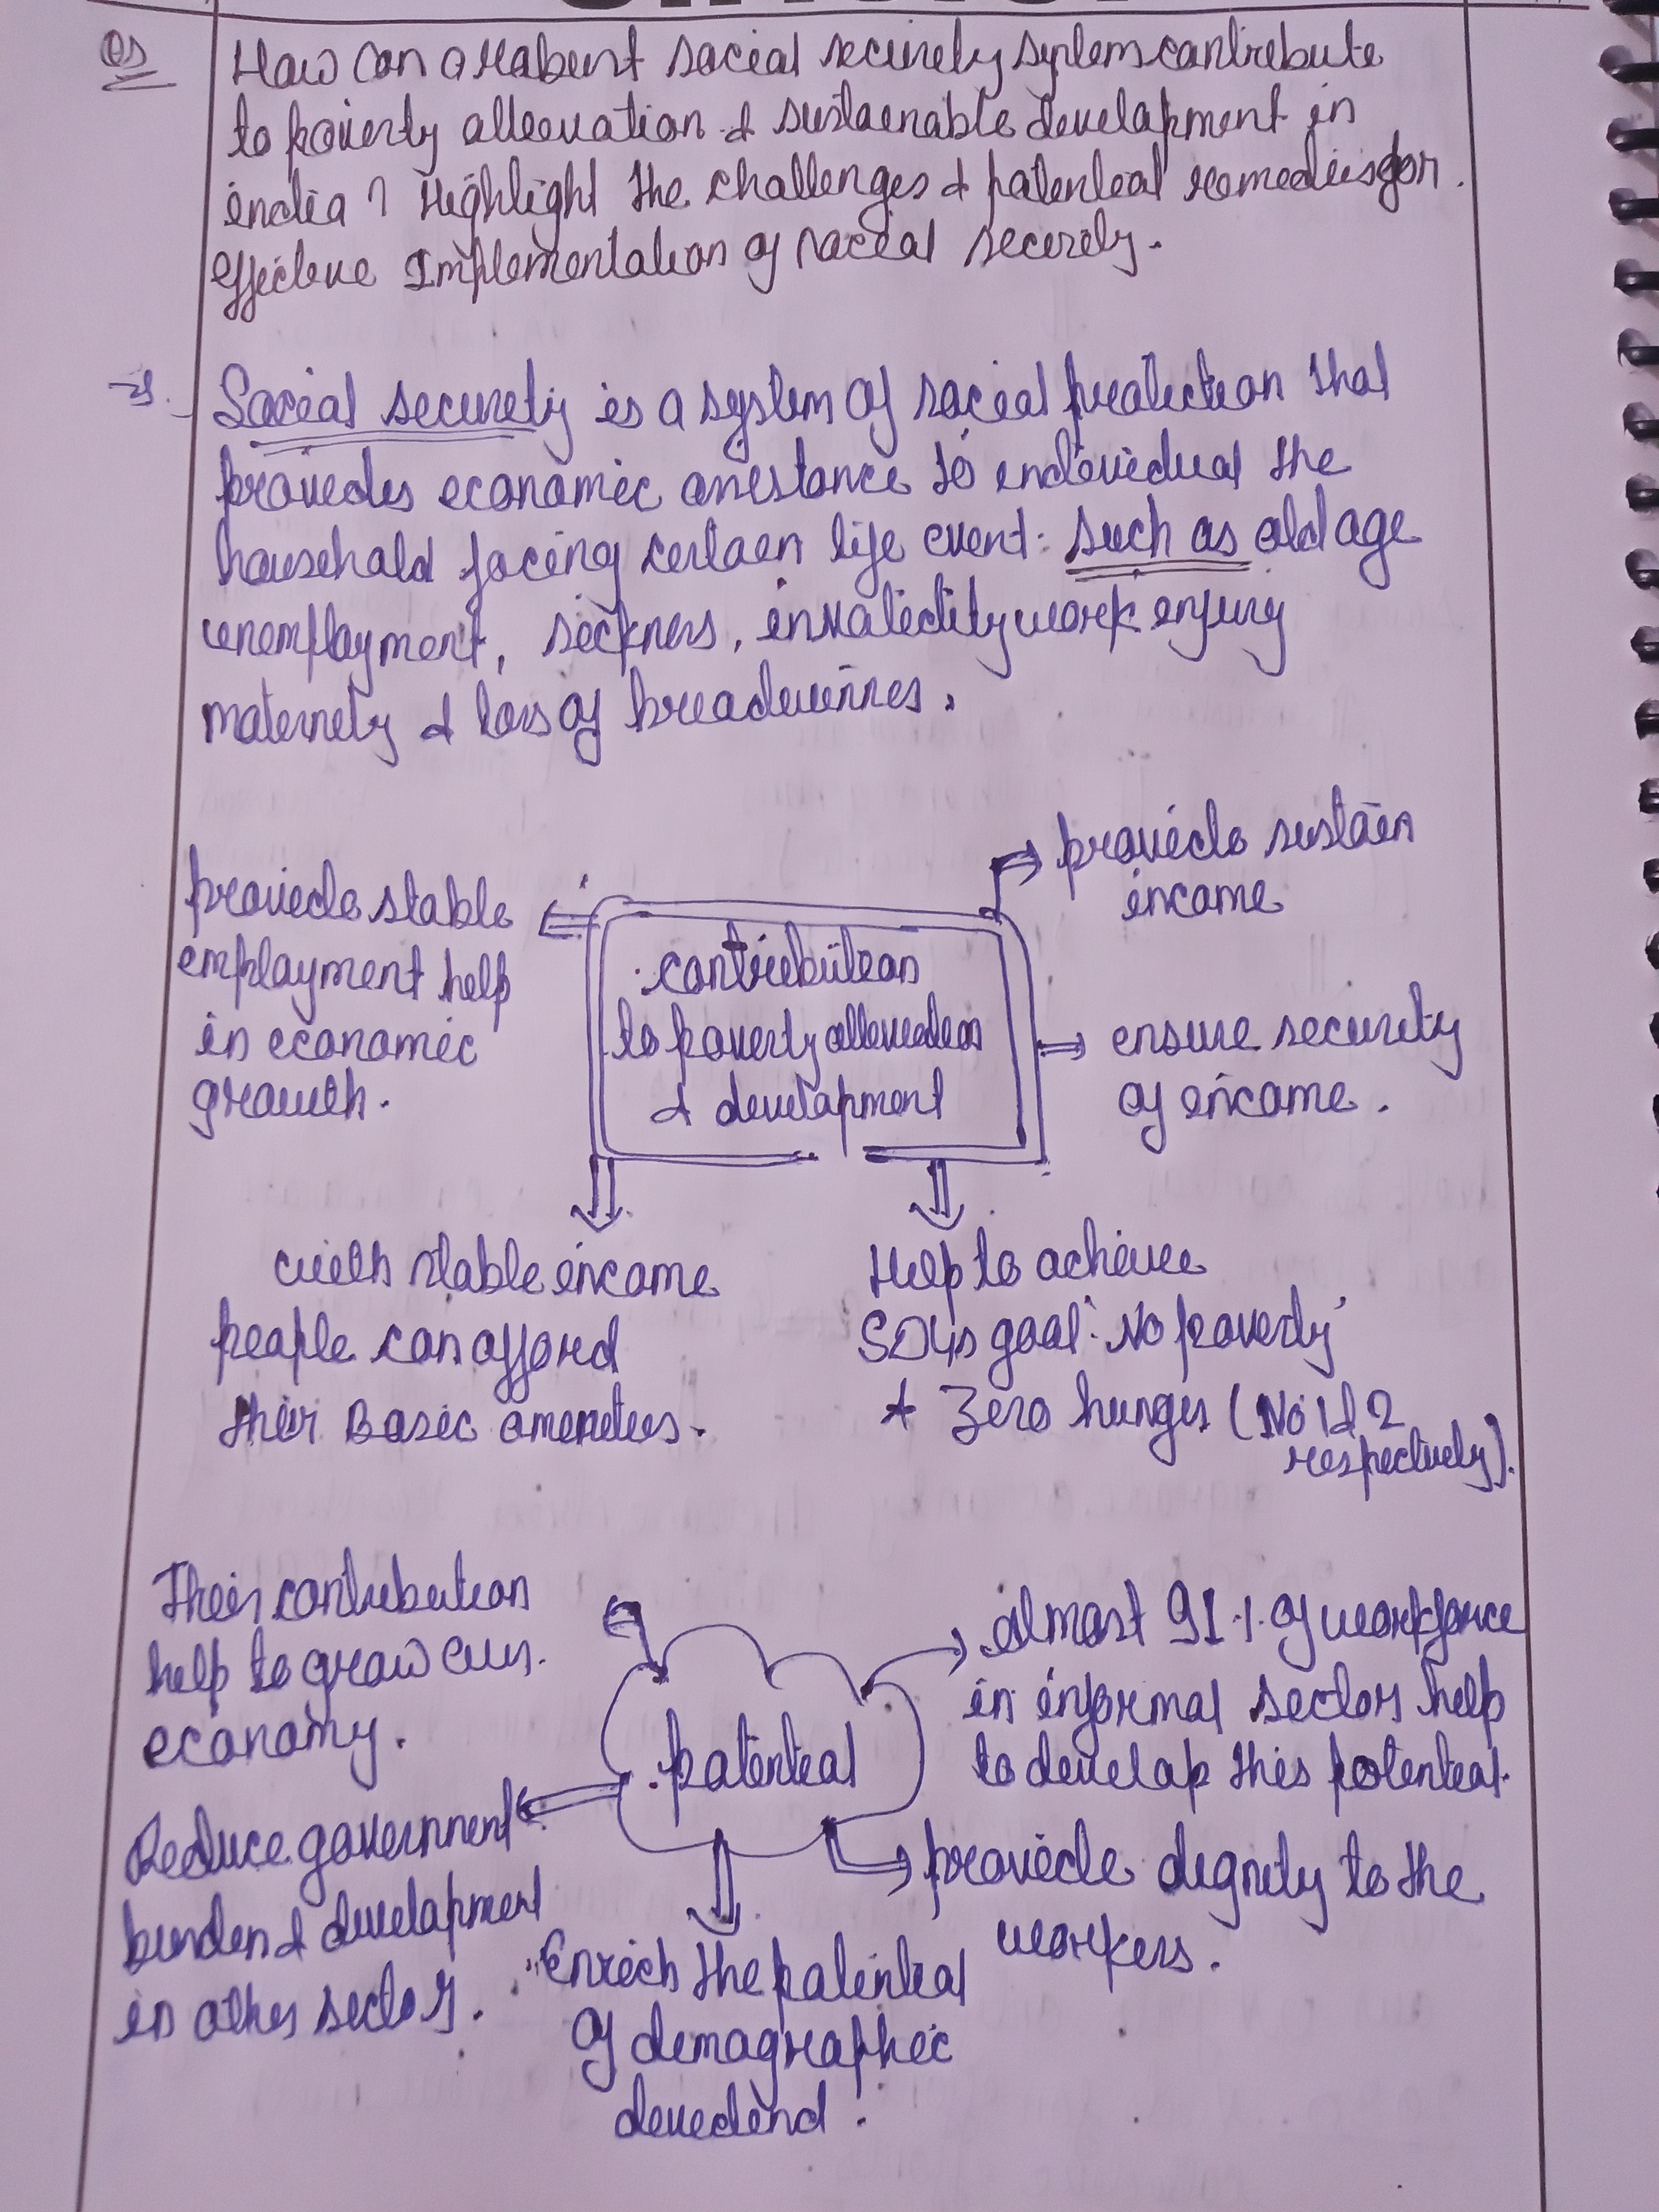 Q5
How can a robust social security system contribute
to poverty alleviation & sustainable development in
india? Highlight the challenges & potential remedies for
effective Implementation of social security.
Social security is a system of social protection that
provides economic assistance to individual the
household facing certain life event: such as old age
unemployment, sickness, invalidity work injury
maternity & loss of breadwinnes.
provide sustain
income
provide stable
employment help
in economic
growth.
contribution
to poverty alleviation
& development
ensure security
of income.
with stable income
people can afford
their Basic amenities.
Help to achieve
SDGs goal: 'No poverty'
& Zero hunger (No 1 & 2
respectively).
Their contribution
help to grow our
economy.
almost 91% of workforce
in informal sector help
to develop this potential.
potential
Reduce government
burden & development
in other sector.
provide dignity to the
workers.
Enrich the potential
of demographic
devedend.